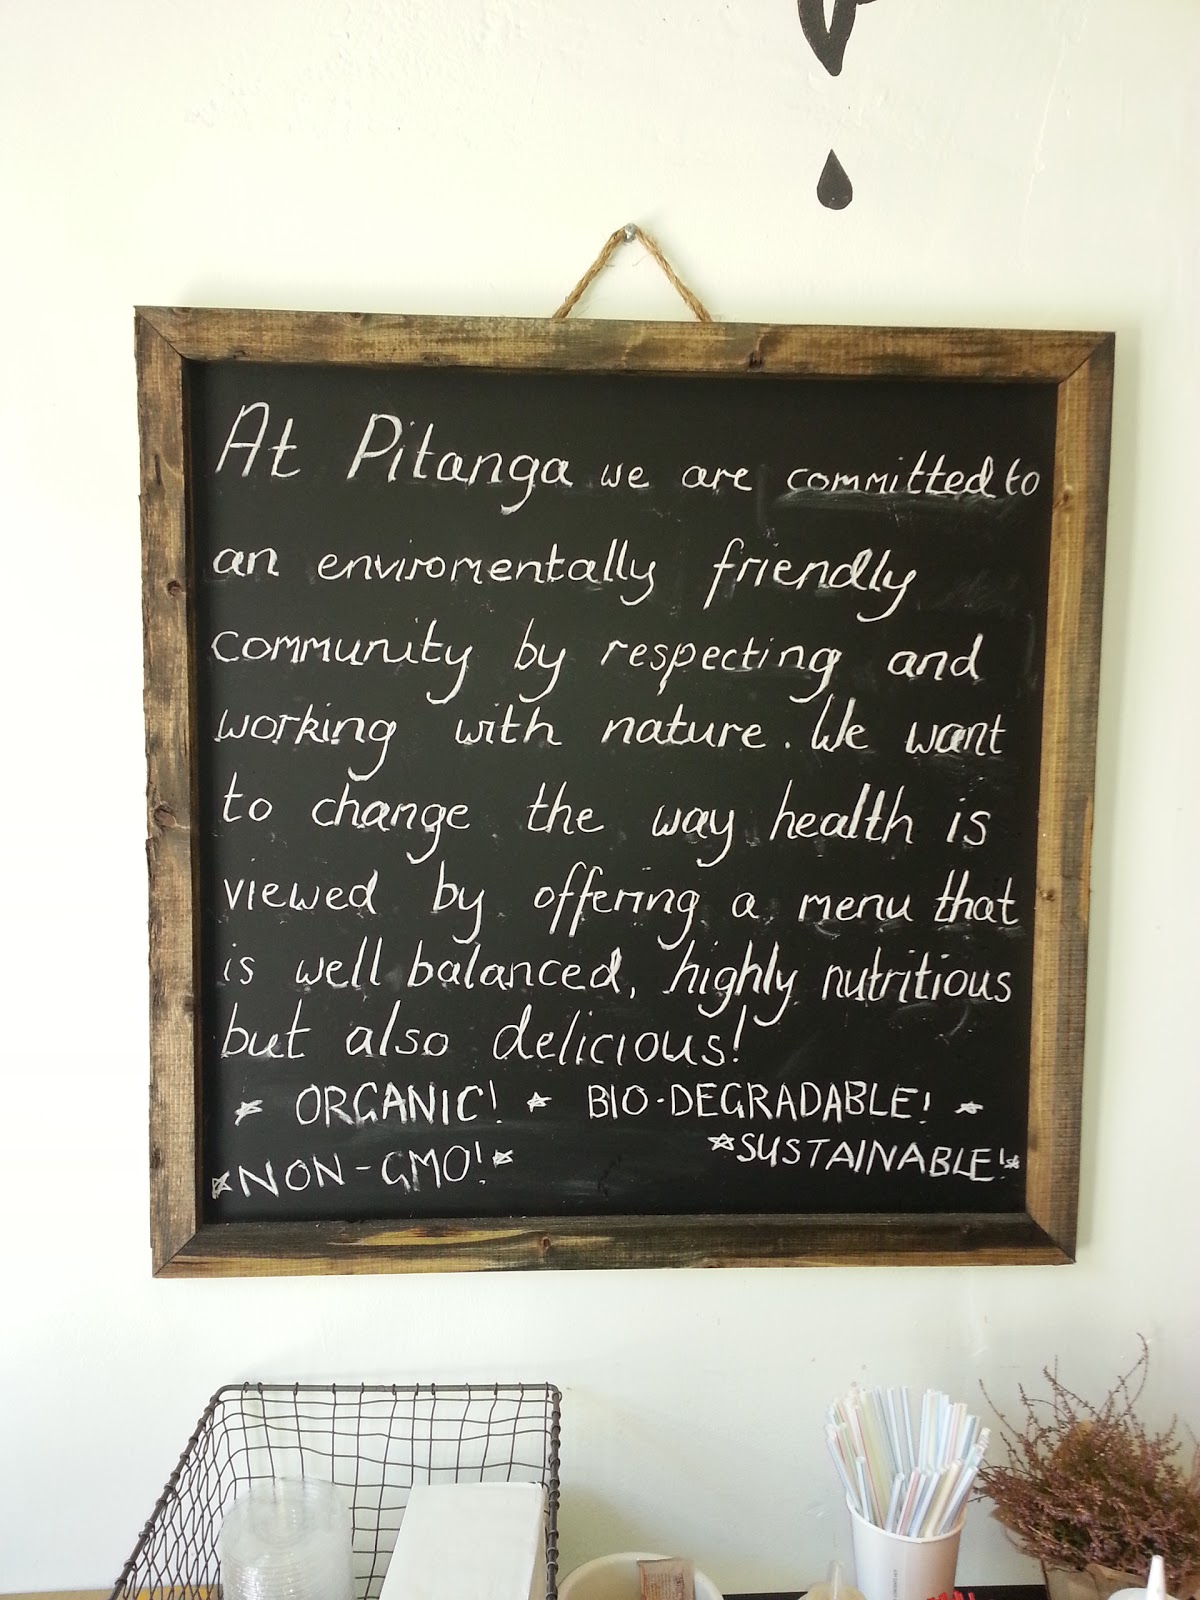 At Pitanga we are committed to
an enviromentally friendly
community by respecting and
working with nature. We want
to change the way health is
viewed by offering a menu that
is well balanced, highly nutritious
but also delicious!
☆ ORGANIC! ☆ BIO-DEGRADABLE! ☆
☆NON-GMO!☆ ☆SUSTAINABLE!☆